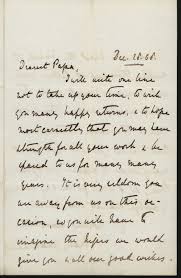 Dec. 28. 68.
Dearest Papa,
I write with one line
not to take up your time, to wish
you many happy returns, & to hope
most earnestly that you may have
strength for all your work & be
spared to us for many many
years. It is very seldom you
are away from us on this oc-
casion, so you will have to
imagine the kisses we would
give you & all our good wishes.